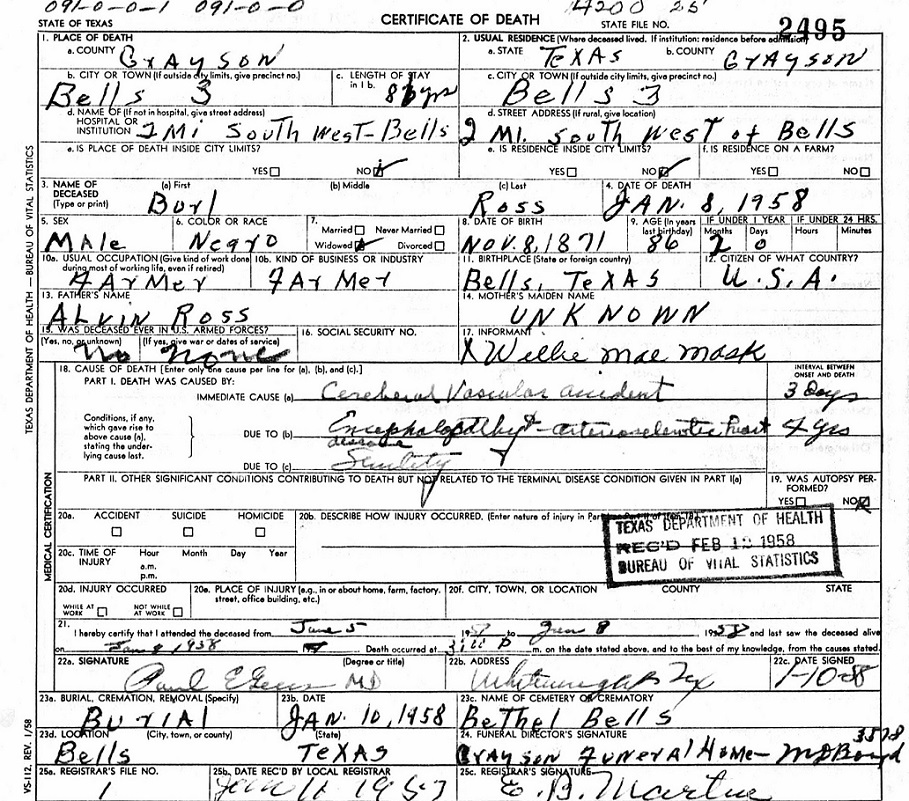 091-0-0-1 091-0-0 4200 25
STATE OF TEXAS CERTIFICATE OF DEATH STATE FILE NO. 2495
TEXAS DEPARTMENT OF HEALTH — BUREAU OF VITAL STATISTICS
1. PLACE OF DEATH 2. USUAL RESIDENCE (Where deceased lived. If institution: residence before admission)
a. COUNTY GRAYSON a. STATE TEXAS b. COUNTY GRAYSON
b. CITY OR TOWN (If outside city limits, give precinct no.) c. LENGTH OF STAY in 1 b. c. CITY OR TOWN (If outside city limits, give precinct no.)
Bells 3 yrs Bells 3
d. NAME OF (If not in hospital, give street address) HOSPITAL OR INSTITUTION 2 Mi South West-Bells d. STREET ADDRESS (If rural, give location) 2 MI. South West of Bells
e. IS PLACE OF DEATH INSIDE CITY LIMITS? e. IS RESIDENCE INSIDE CITY LIMITS? f. IS RESIDENCE ON A FARM?
YES NO YES NO YES NO
3. NAME OF DECEASED (Type or print) (a) First (b) Middle (c) Last 4. DATE OF DEATH
Burl Ross JAN. 8, 1958
5. SEX 6. COLOR OR RACE 7. Married Never Married Widowed Divorced 8. DATE OF BIRTH 9. AGE (In years last birthday) IF UNDER 1 YEAR Months Days IF UNDER 24 HRS. Hours Minutes
MAle Negro NOV. 8, 1871 86 2 0
10a. USUAL OCCUPATION (Give kind of work done during most of working life, even if retired) 10b. KIND OF BUSINESS OR INDUSTRY 11. BIRTHPLACE (State or foreign country) 12. CITIZEN OF WHAT COUNTRY?
FArMer FArMer Bells, TEXAS U.S.A.
13. FATHER'S NAME 14. MOTHER'S MAIDEN NAME
ALVIN ROSS UNKNOWN
15. WAS DECEASED EVER IN U.S. ARMED FORCES? 16. SOCIAL SECURITY NO. 17. INFORMANT
(Yes, no, or unknown) (If yes, give war or dates of service)
No None X Willie Mae Mask
18. CAUSE OF DEATH [Enter only one cause per line for (a), (b), and (c).] INTERVAL BETWEEN ONSET AND DEATH
PART I. DEATH WAS CAUSED BY:
IMMEDIATE CAUSE (a) Cerebral Vascular accident 3 Days
Conditions, if any, which gave rise to above cause (a), stating the underlying cause last.
DUE TO (b) Encephalopathy & arteriosclerotic heart disease 4 yrs
DUE TO (c) Senility
PART II. OTHER SIGNIFICANT CONDITIONS CONTRIBUTING TO DEATH BUT NOT RELATED TO THE TERMINAL DISEASE CONDITION GIVEN IN PART I(a) 19. WAS AUTOPSY PERFORMED?
YES NO
MEDICAL CERTIFICATION
20a. ACCIDENT SUICIDE HOMICIDE 20b. DESCRIBE HOW INJURY OCCURRED. (Enter nature of injury in Part
TEXAS DEPARTMENT OF HEALTH
REC'D FEB 1958
BUREAU OF VITAL STATISTICS
20c. TIME OF INJURY Hour Month Day Year
a.m.
p.m.
20d. INJURY OCCURRED 20e. PLACE OF INJURY (e.g., in or about home, farm, factory, street, office building, etc.) 20f. CITY, TOWN, OR LOCATION COUNTY STATE
WHILE AT WORK NOT WHILE AT WORK
21. I hereby certify that I attended the deceased from June 5 to Jan 8 1958 and last saw the deceased alive
on Jan 8 1958 Death occurred at m. on the date stated above, and to the best of my knowledge, from the causes stated.
22a. SIGNATURE (Degree or title) 22b. ADDRESS 22c. DATE SIGNED
Paul MD Whitewright Tex 1-10-58
23a. BURIAL, CREMATION, REMOVAL (Specify) 23b. DATE 23c. NAME OF CEMETERY OR CREMATORY
BurIAl JAN. 10, 1958 Bethel Bells
23d. LOCATION (City, town, or county) (State) 24. FUNERAL DIRECTOR'S SIGNATURE
Bells TEXAS GRAYSON Funeral Home-
VS-112, REV. 1/58
25a. REGISTRAR'S FILE NO. 25b. DATE REC'D BY LOCAL REGISTRAR 25c. REGISTRAR'S SIGNATURE
1 Jan 11 E. B. Martin